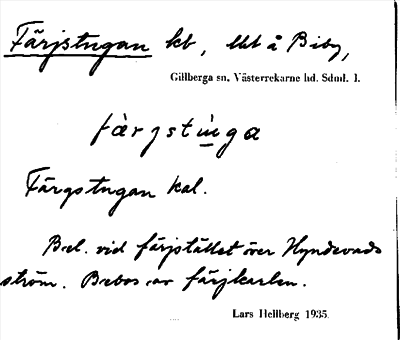 Färjstugan kb, Ubt å Biby,
Gillberga sn. Västerrekarne hd. Sdml. l.
färgstuga
Färgstugan kal.
Bel. vid färjstället över Hyndevads
ström. Bebos av färjkarlen.
Lars Hellberg 1935